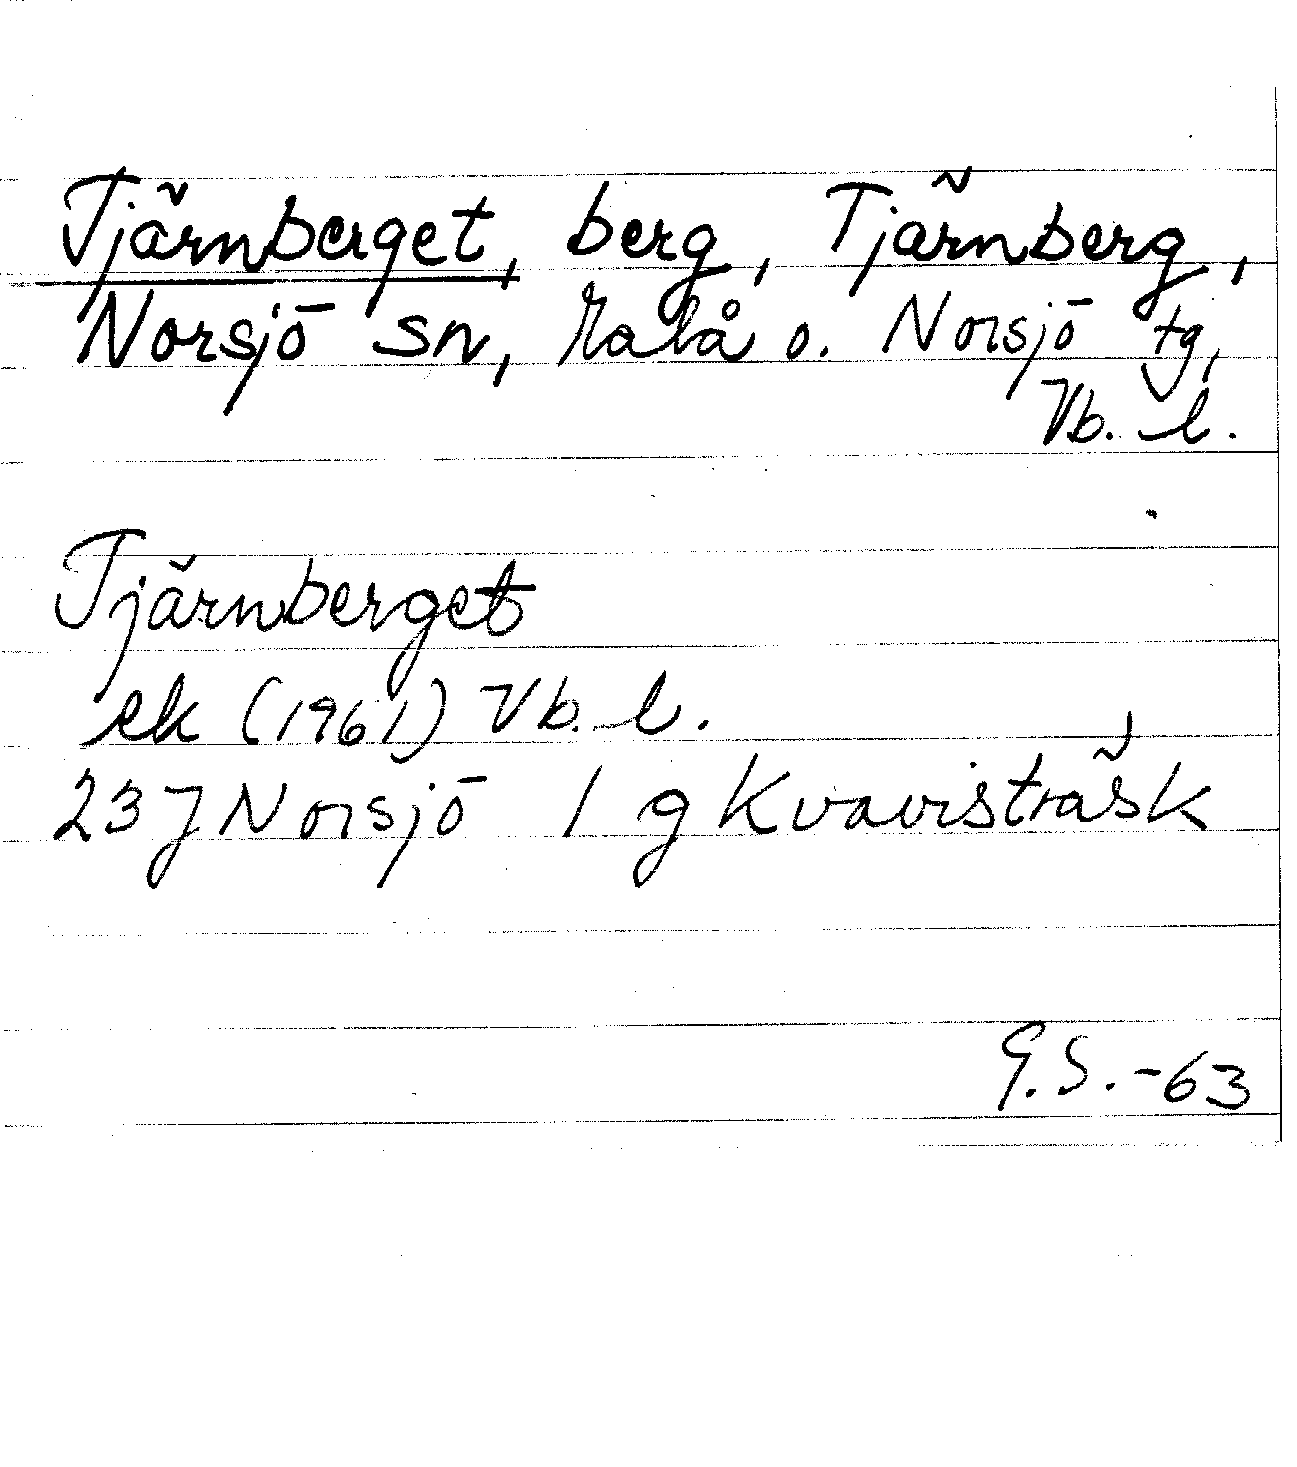 Tjärnberget, berg, Tjärnberg,
Norsjö sn, Malå o. Norsjö tg,
Vb. l.
Tjärnberget
ek (1961) Vb. l.
23 J Norsjö 1 g Kvavisträsk
G.S. -63